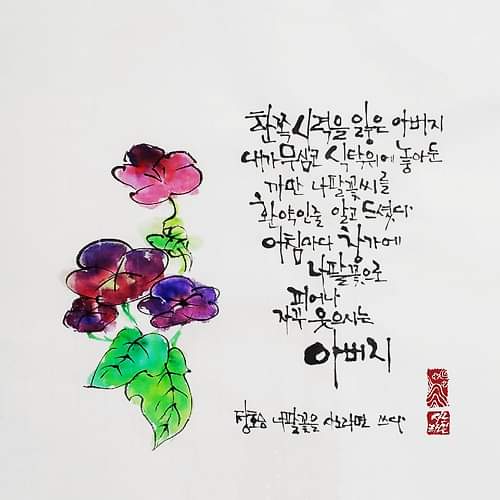 한쪽 시력을 잃은 아버지
내가 무심코 식탁위에 놓아둔
까만 나팔꽃씨를
환약인줄 알고 드셨다
아침마다 창가에
나팔꽃으로
피어나
자꾸 웃으시는
아버지
정호승 나팔꽃을 쓰다